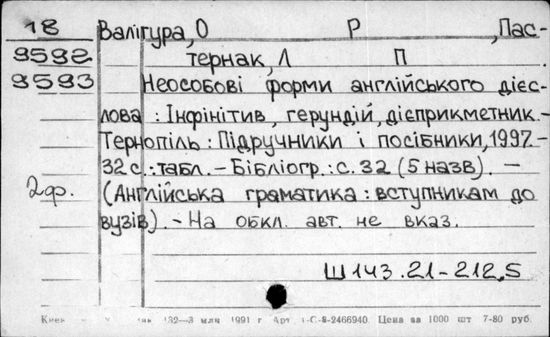 18 Валігура, О Р , Пас-
9592 тернак, Л П
9593 Неособові форми англійського дієс-
лова : Інфінітив, герундій, дієприкметник.-
Тернопіль : Підручники і посібники, 1997.-
32 с. : табл. – Бібліогр.: с. 32 (5 назв). –
2ф. (Англійська граматика : вступникам до
вузів). – На обкл. авт. не вказ.
Ш143.21-212.5
132—3 млн 1991 г Арт. 1-С-8-2466940. Цена за 1000 шт 7-80 руб.